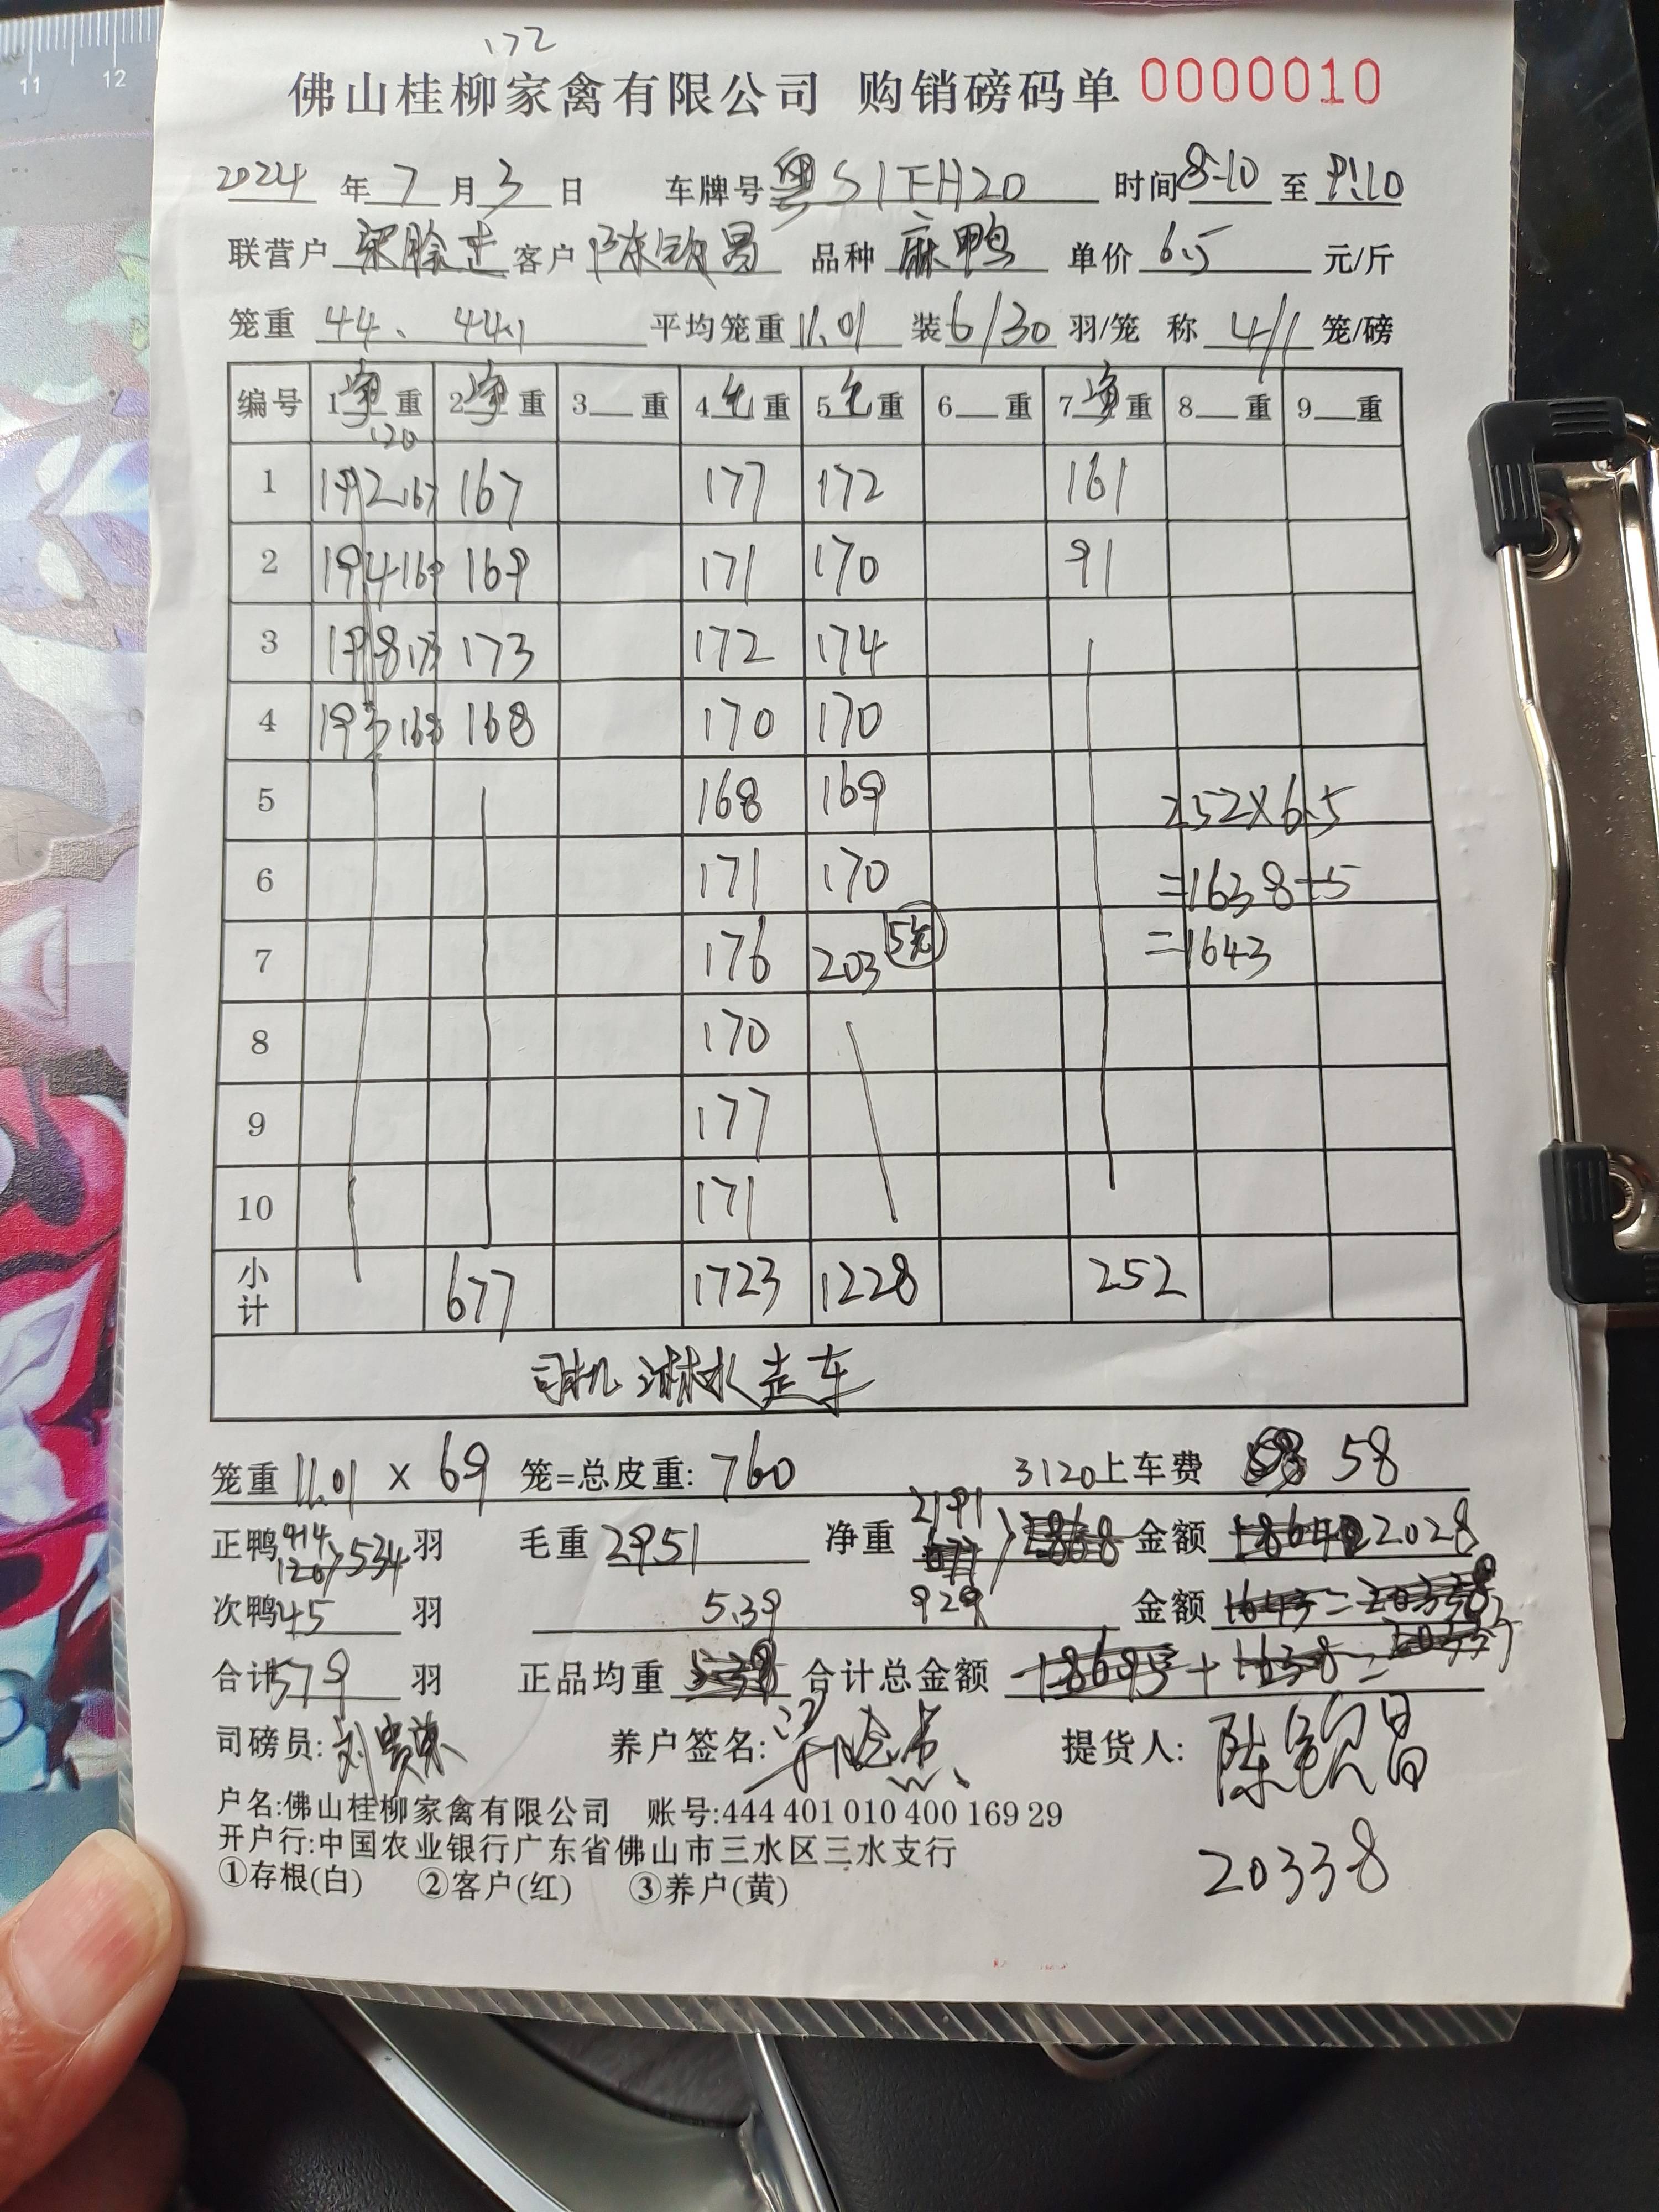 11 12
172
佛山桂柳家禽有限公司 购销磅码单 0000010
2024 年 7 月 3 日 车牌号 粤S1FH20 时间 8-10 至 9:10
联营户 客户 陈钦昌 品种 麻鸭 单价 6.5 元/斤
笼重 44、44.1 平均笼重 11.01 装 6/30 羽/笼 称 4/1 笼/磅
编号 1净重 2净重 3 重 4毛重 5毛重 6 重 7净重 8 重 9 重
120
1 192 167 167 177 172 161
2 194 169 169 171 170 91
3 198 173 173 172 174
4 193 168 168 170 170
5 168 169 252×6.5
6 171 170 =1638+5
7 176 203 5元 =1643
8 170
9 177
10 171
小计 677 1723 1228 252
司机淋水走车
笼重 11.01 × 69 笼=总皮重: 760 3120 上车费 58
正鸭 414 120 534 羽 毛重 2951 净重 2191 677 金额 2028
次鸭 45 羽 5.39 929 金额 1643=20338
合计 579 羽 正品均重 合计总金额 18695+1638=
司磅员: 养户签名: 提货人: 陈钦昌
户名:佛山桂柳家禽有限公司 账号:444 401 010 400 169 29
开户行:中国农业银行广东省佛山市三水区三水支行
①存根(白) ②客户(红) ③养户(黄)
20338